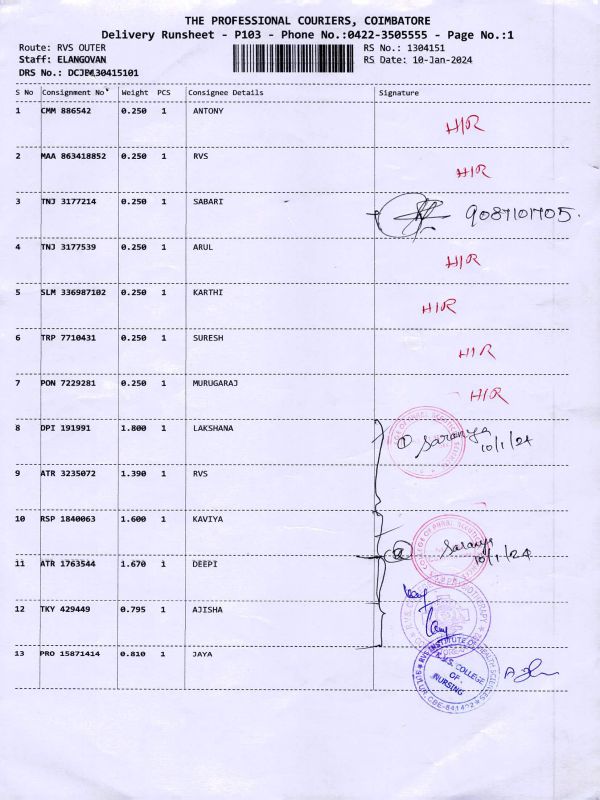 THE PROFESSIONAL COURIERS, COIMBATORE
Delivery Runsheet - P103 - Phone No.:0422-3505555 - Page No.:1
Route: RVS OUTER RS No.: 1304151
Staff: ELANGOVAN RS Date: 10-Jan-2024
DRS No.: DCJBM130415101
S No Consignment No Weight PCS Consignee Details Signature
1 CMM 886542 0.250 1 ANTONY H/R
2 MAA 863418852 0.250 1 RVS H/R
3 TNJ 3177214 0.250 1 SABARI 9087101705.
4 TNJ 3177539 0.250 1 ARUL H/R
5 SLM 336987102 0.250 1 KARTHI H/R
6 TRP 7710431 0.250 1 SURESH H/R
7 PON 7229281 0.250 1 MURUGARAJ H/R
8 DPI 191991 1.800 1 LAKSHANA ① Saranya 10/1/24
9 ATR 3235072 1.390 1 RVS
10 RSP 1840063 1.600 1 KAVIYA Saranya 10/1/24
11 ATR 1763544 1.670 1 DEEPI
12 TKY 429449 0.795 1 AJISHA
13 PRO 15871414 0.810 1 JAYA
R.V.S. COLLEGE
OF
NURSING